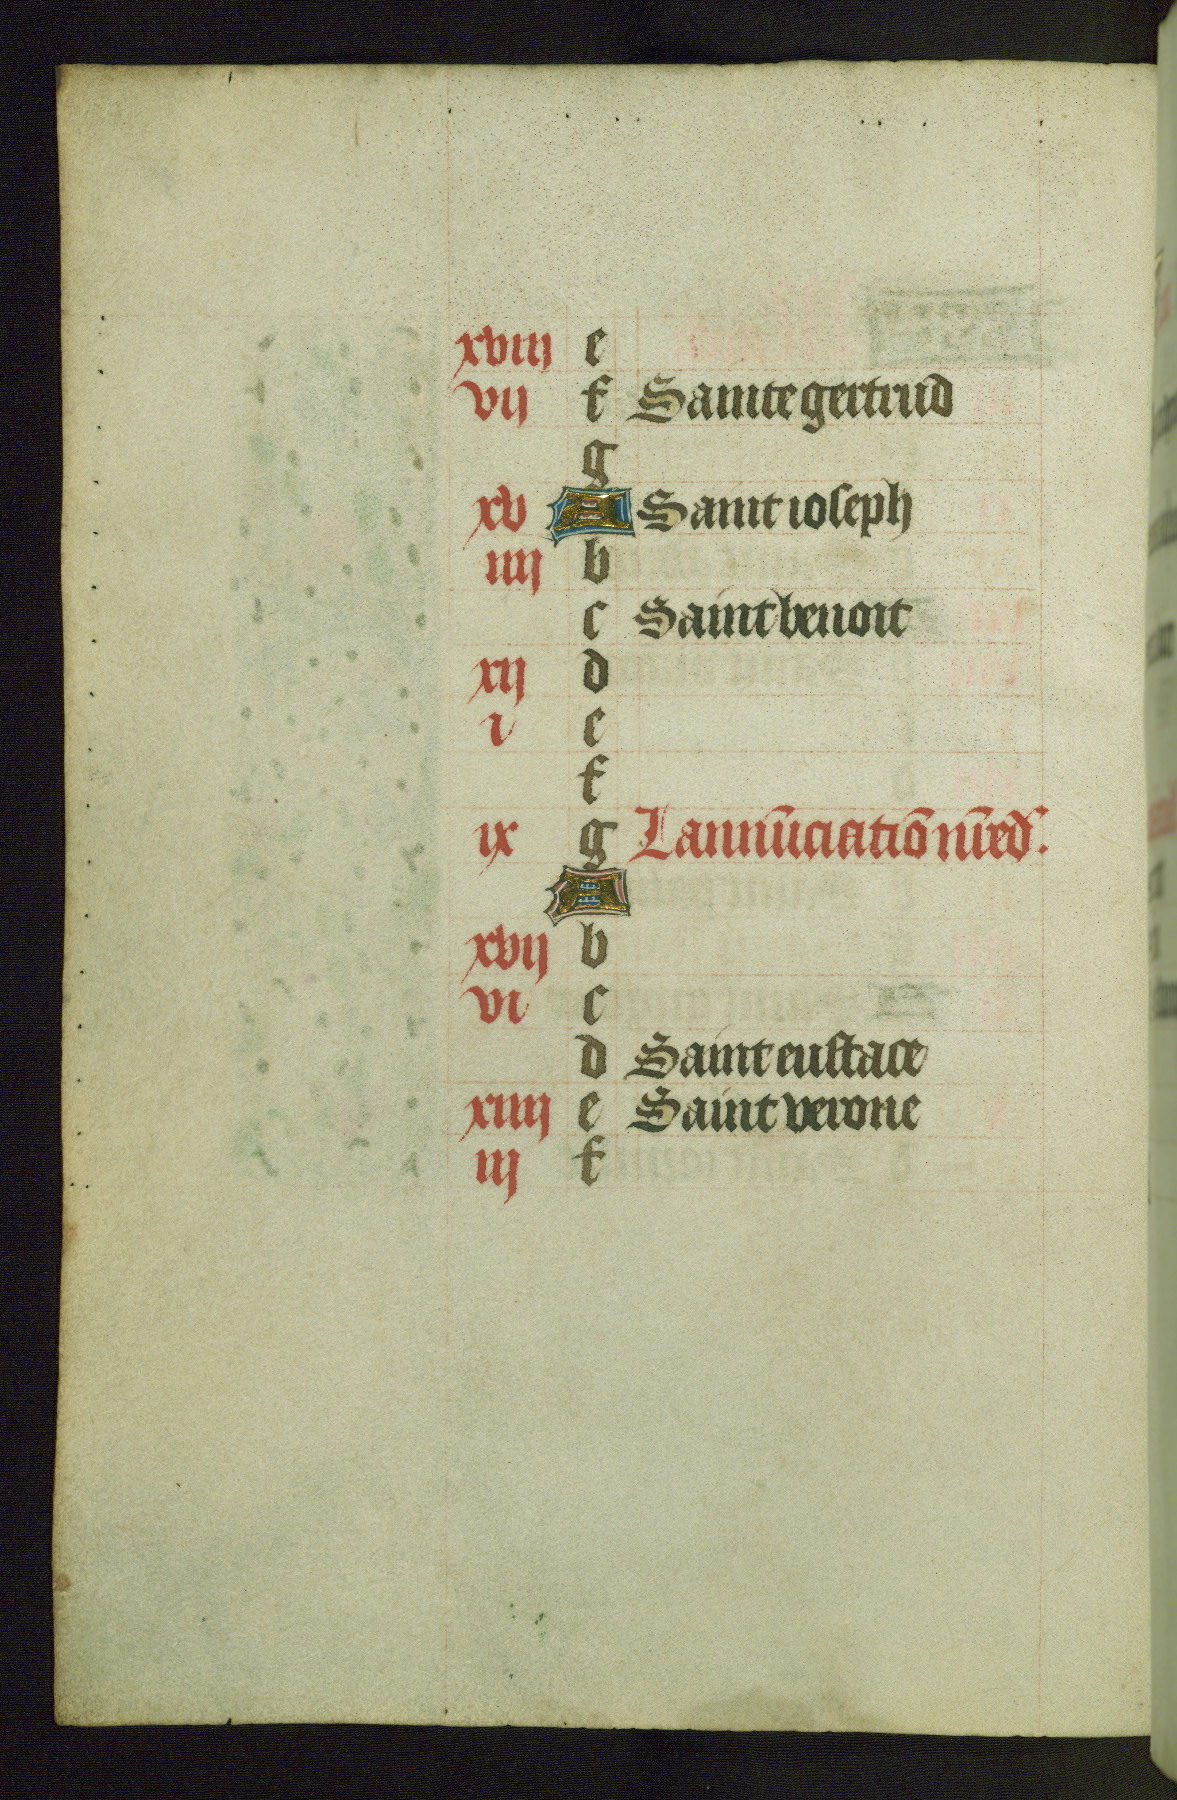 xviij e
vij f Sainte gertrud
g
xv A Saint ioseph
iiij b
c Saint benoit
xij d
i e
f
ix g Lannu̅ciatio̅ nr̅ed̅.
A
xvij b
vi c
d Saint eustace
xiiij e Saint verone
iij f